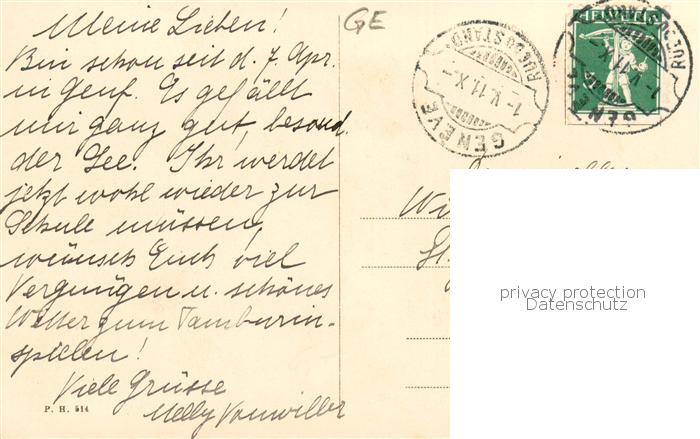 Meine Lieben!
Bin schon seit d. 7. Apr.
in Genf. Es gefällt
mir ganz gut, besond.
der See. Ihr werdet
jetzt wohl wieder zur
Schule müssen,
wünsch Euch viel
Vergnügen u. schönes
Wetter zum Tamburin-
spielen!
Viele Grüsse
Nelly Vonwiller
P. H. 514
GE
GENÈVE
RUE DU STAND
1-V.11.X-
HELVETIA
GENÈVE
RUE DU STAND
1-V.11.X-
Wi
St.
privacy protection
Datenschutz